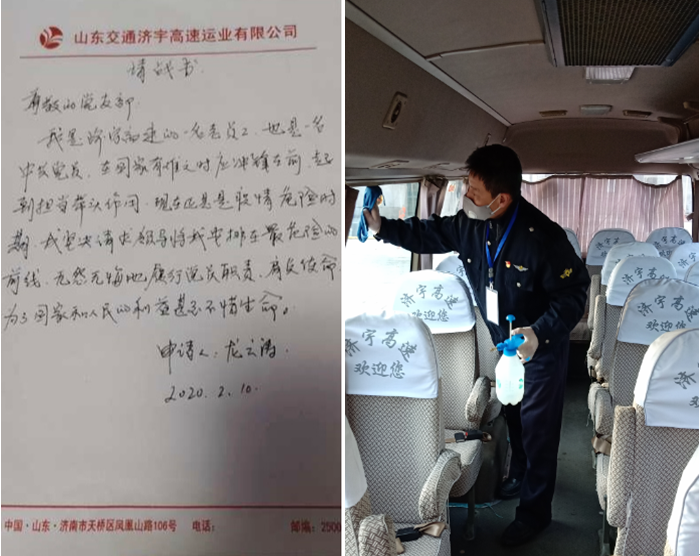 山东交通济宇高速运业有限公司
请战书
尊敬的党支部
我是济宇高速的一名老员工,也是一名
中共党员,在国家有难之时应冲锋在前,起
到担当带头作用,现在正是是疫情危险时
期,我坚决请求领导将我安排在最危险的
前线,无怨无悔地履行党员职责,肩负使命
为了国家和人民的利益甚至不惜生命。
申请人:龙云涛
2020.2.10.
中国·山东·济南市天桥区凤凰山路106号 电话: 邮编:2500
济宇高速
欢迎您
济宇高速
欢迎您
济宇高速
欢迎您